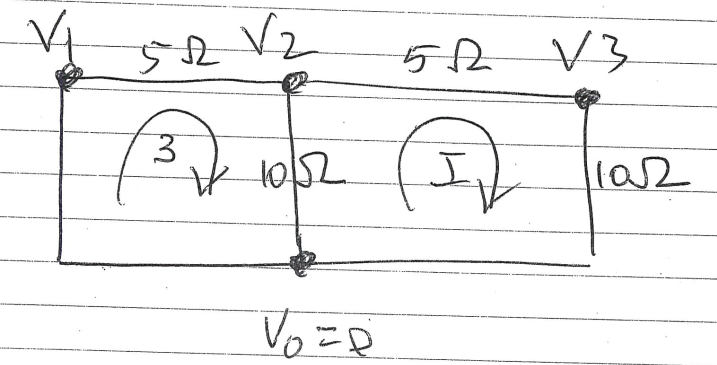 V1 5Ω V2 5Ω V3
3 10Ω I 10Ω
V0=0